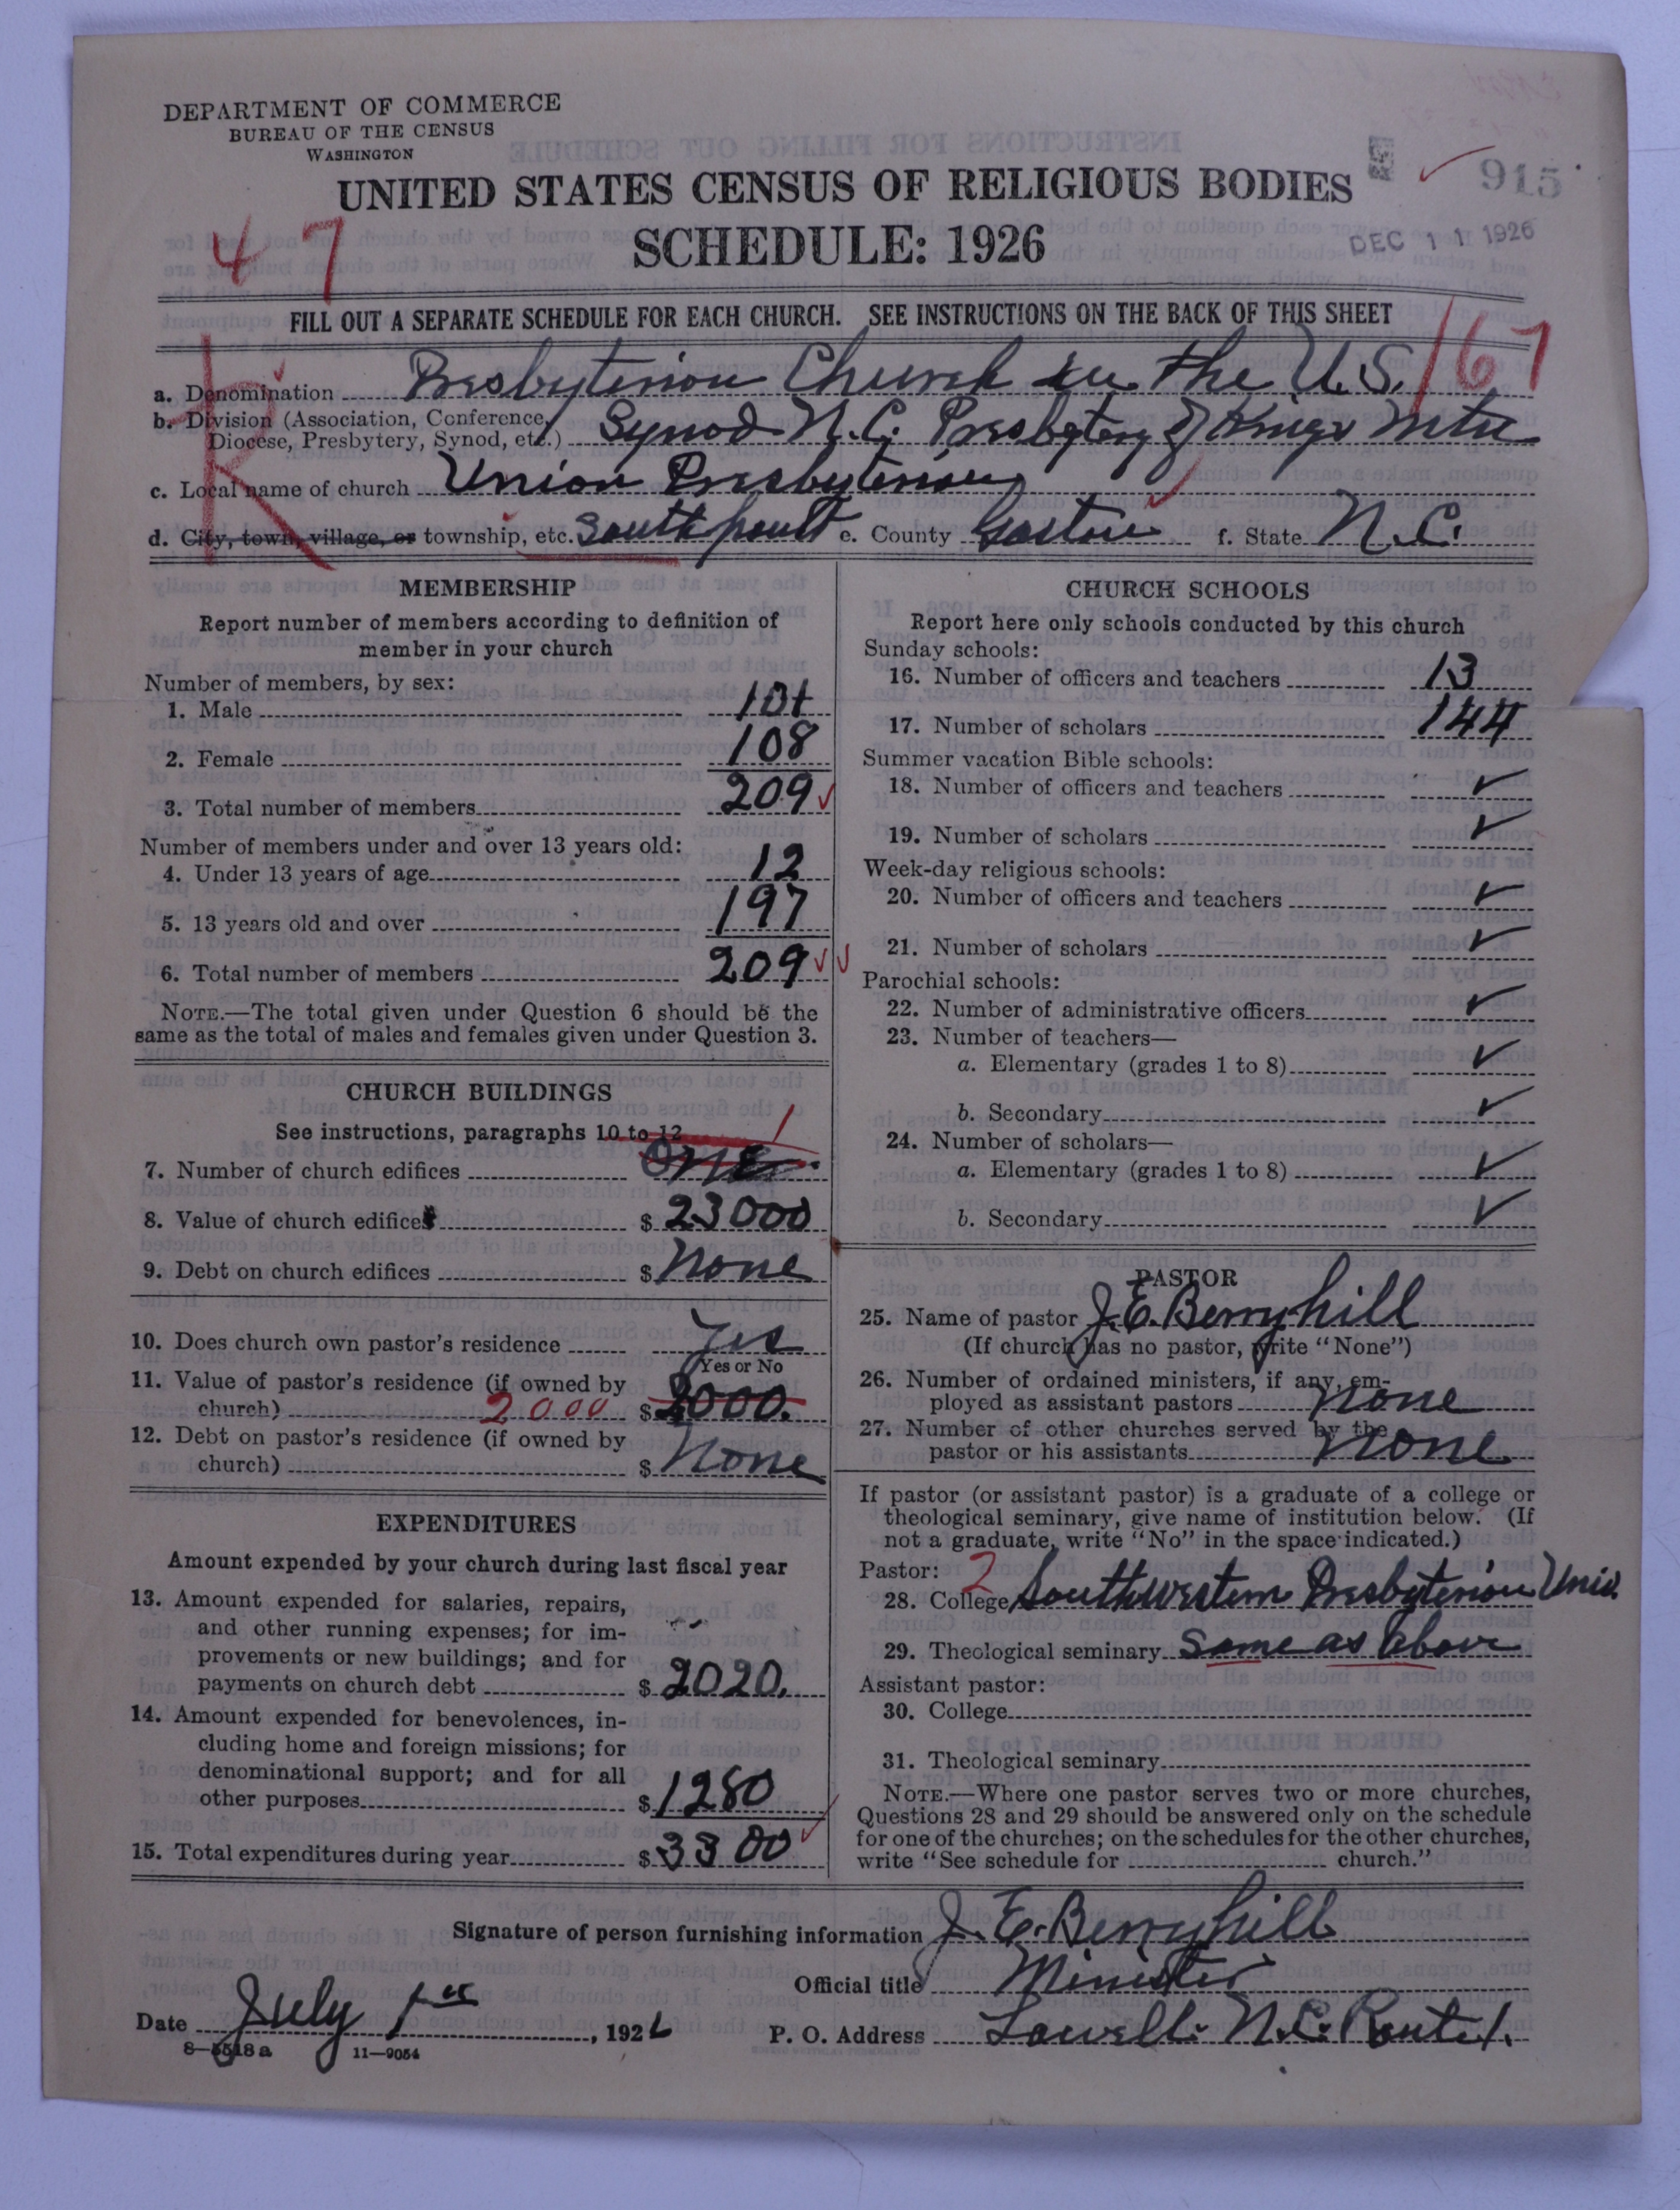 DEPARTMENT OF COMMERCE
BUREAU OF THE CENSUS
WASHINGTON
UNITED STATES CENSUS OF RELIGIOUS BODIES
SCHEDULE: 1926
915
DEC 11 1926
47
FILL OUT A SEPARATE SCHEDULE FOR EACH CHURCH. SEE INSTRUCTIONS ON THE BACK OF THIS SHEET
167
K
a. Denomination Presbyterian Church in the U.S.
b. Division (Association, Conference,
Diocese, Presbytery, Synod, etc.) Synod N.C. Presbytery of Kings Mtn
c. Local name of church Union Presbyterian
d. City, town, village, or township, etc. South point e. County Gaston f. State N.C.
MEMBERSHIP
Report number of members according to definition of
member in your church
Number of members, by sex:
1. Male 101
2. Female 108
3. Total number of members 209
Number of members under and over 13 years old:
4. Under 13 years of age 12
5. 13 years old and over 197
6. Total number of members 209
NOTE.—The total given under Question 6 should be the
same as the total of males and females given under Question 3.
CHURCH BUILDINGS
See instructions, paragraphs 10 to 12
1
7. Number of church edifices One
8. Value of church edifices $ 23000
9. Debt on church edifices $ None
10. Does church own pastor's residence Yes
Yes or No
11. Value of pastor's residence (if owned by
church) 2000 $ 2000.
12. Debt on pastor's residence (if owned by
church) $ None
EXPENDITURES
Amount expended by your church during last fiscal year
13. Amount expended for salaries, repairs,
and other running expenses; for im-
provements or new buildings; and for
payments on church debt $ 2020.
14. Amount expended for benevolences, in-
cluding home and foreign missions; for
denominational support; and for all
other purposes $ 1280
15. Total expenditures during year $ 3300
CHURCH SCHOOLS
Report here only schools conducted by this church
Sunday schools:
16. Number of officers and teachers 13
17. Number of scholars 144
Summer vacation Bible schools:
18. Number of officers and teachers ✓
19. Number of scholars ✓
Week-day religious schools:
20. Number of officers and teachers ✓
21. Number of scholars ✓
Parochial schools:
22. Number of administrative officers ✓
23. Number of teachers—
a. Elementary (grades 1 to 8) ✓
b. Secondary ✓
24. Number of scholars—
a. Elementary (grades 1 to 8) ✓
b. Secondary ✓
PASTOR
25. Name of pastor J. E. Berryhill
(If church has no pastor, write "None")
26. Number of ordained ministers, if any, em-
ployed as assistant pastors None
27. Number of other churches served by the
pastor or his assistants None
If pastor (or assistant pastor) is a graduate of a college or
theological seminary, give name of institution below. (If
not a graduate, write "No" in the space indicated.)
Pastor: 2
28. College Southwestern Presbyterian Univ.
29. Theological seminary Same as above
Assistant pastor:
30. College
31. Theological seminary
NOTE.—Where one pastor serves two or more churches,
Questions 28 and 29 should be answered only on the schedule
for one of the churches; on the schedules for the other churches,
write "See schedule for church."
Signature of person furnishing information J. E. Berryhill
Official title Minister
Date July 1st, 1926 P. O. Address Lowell. N.C. Route 1.
8—5518a 11—9054